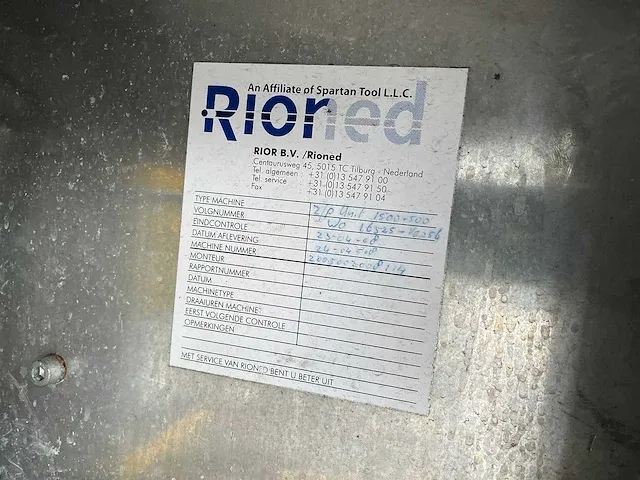 An Affiliate of Spartan Tool L.L.C.
Rioned
RIOR B.V. /Rioned
Centaurusweg 45, 5015 TC Tilburg - Nederland
Tel. algemeen : +31.(0)13 547 91 00
Tel. service : +31.(0)13 547 91 50
Fax : +31.(0)13 547 91 04
TYPE MACHINE Z/P Unit 1500-500
VOLGNUMMER WO 16525-
EINDCONTROLE 23-04-08
DATUM AFLEVERING 24-04-08
MACHINE NUMMER
MONTEUR
RAPPORTNUMMER
DATUM
MACHINETYPE
DRAAIUREN MACHINE
EERST VOLGENDE CONTROLE
OPMERKINGEN
MET SERVICE VAN RIONED BENT U BETER UIT